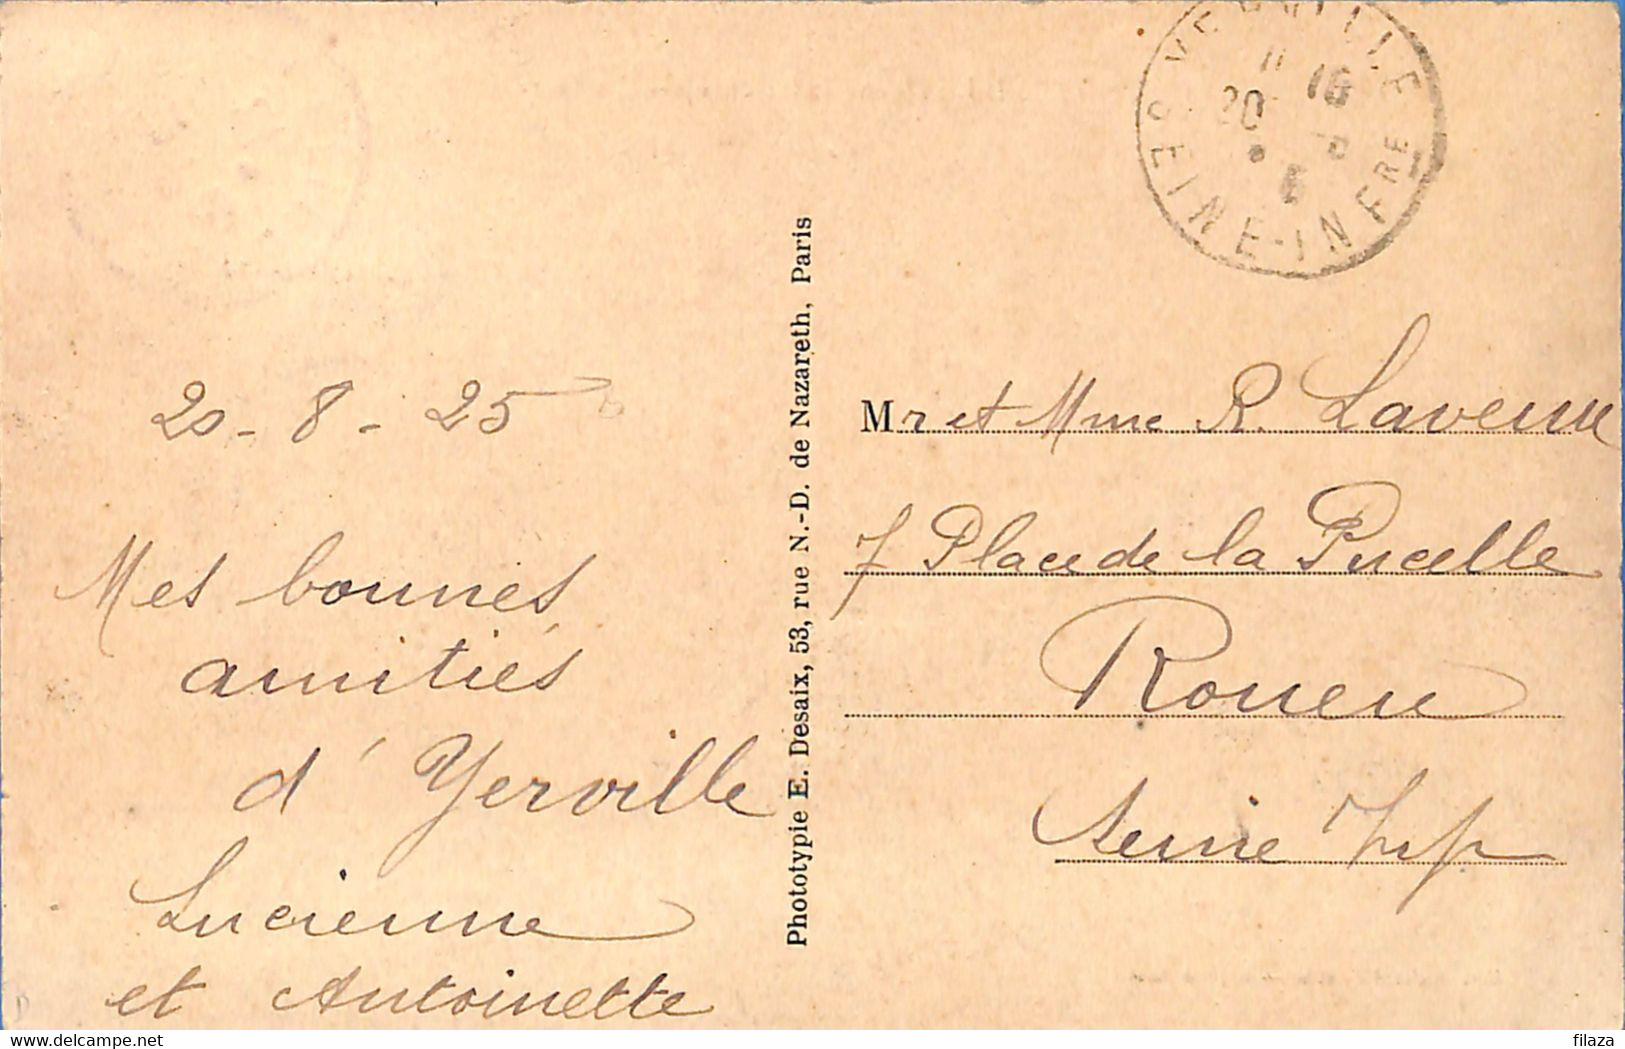 20 - 8 - 25
Mes bonnes
amitiés
d'Yerville
Lucienne
et Antoinette
Phototypie E. Desaix, 53, rue N.-D. de Nazareth, Paris
YERVILLE
20 16
SEINE-INFRE
Mr et Mme R.
7 Place de la Pucelle
Rouen
Seine Inf
delcampe.net
filaza